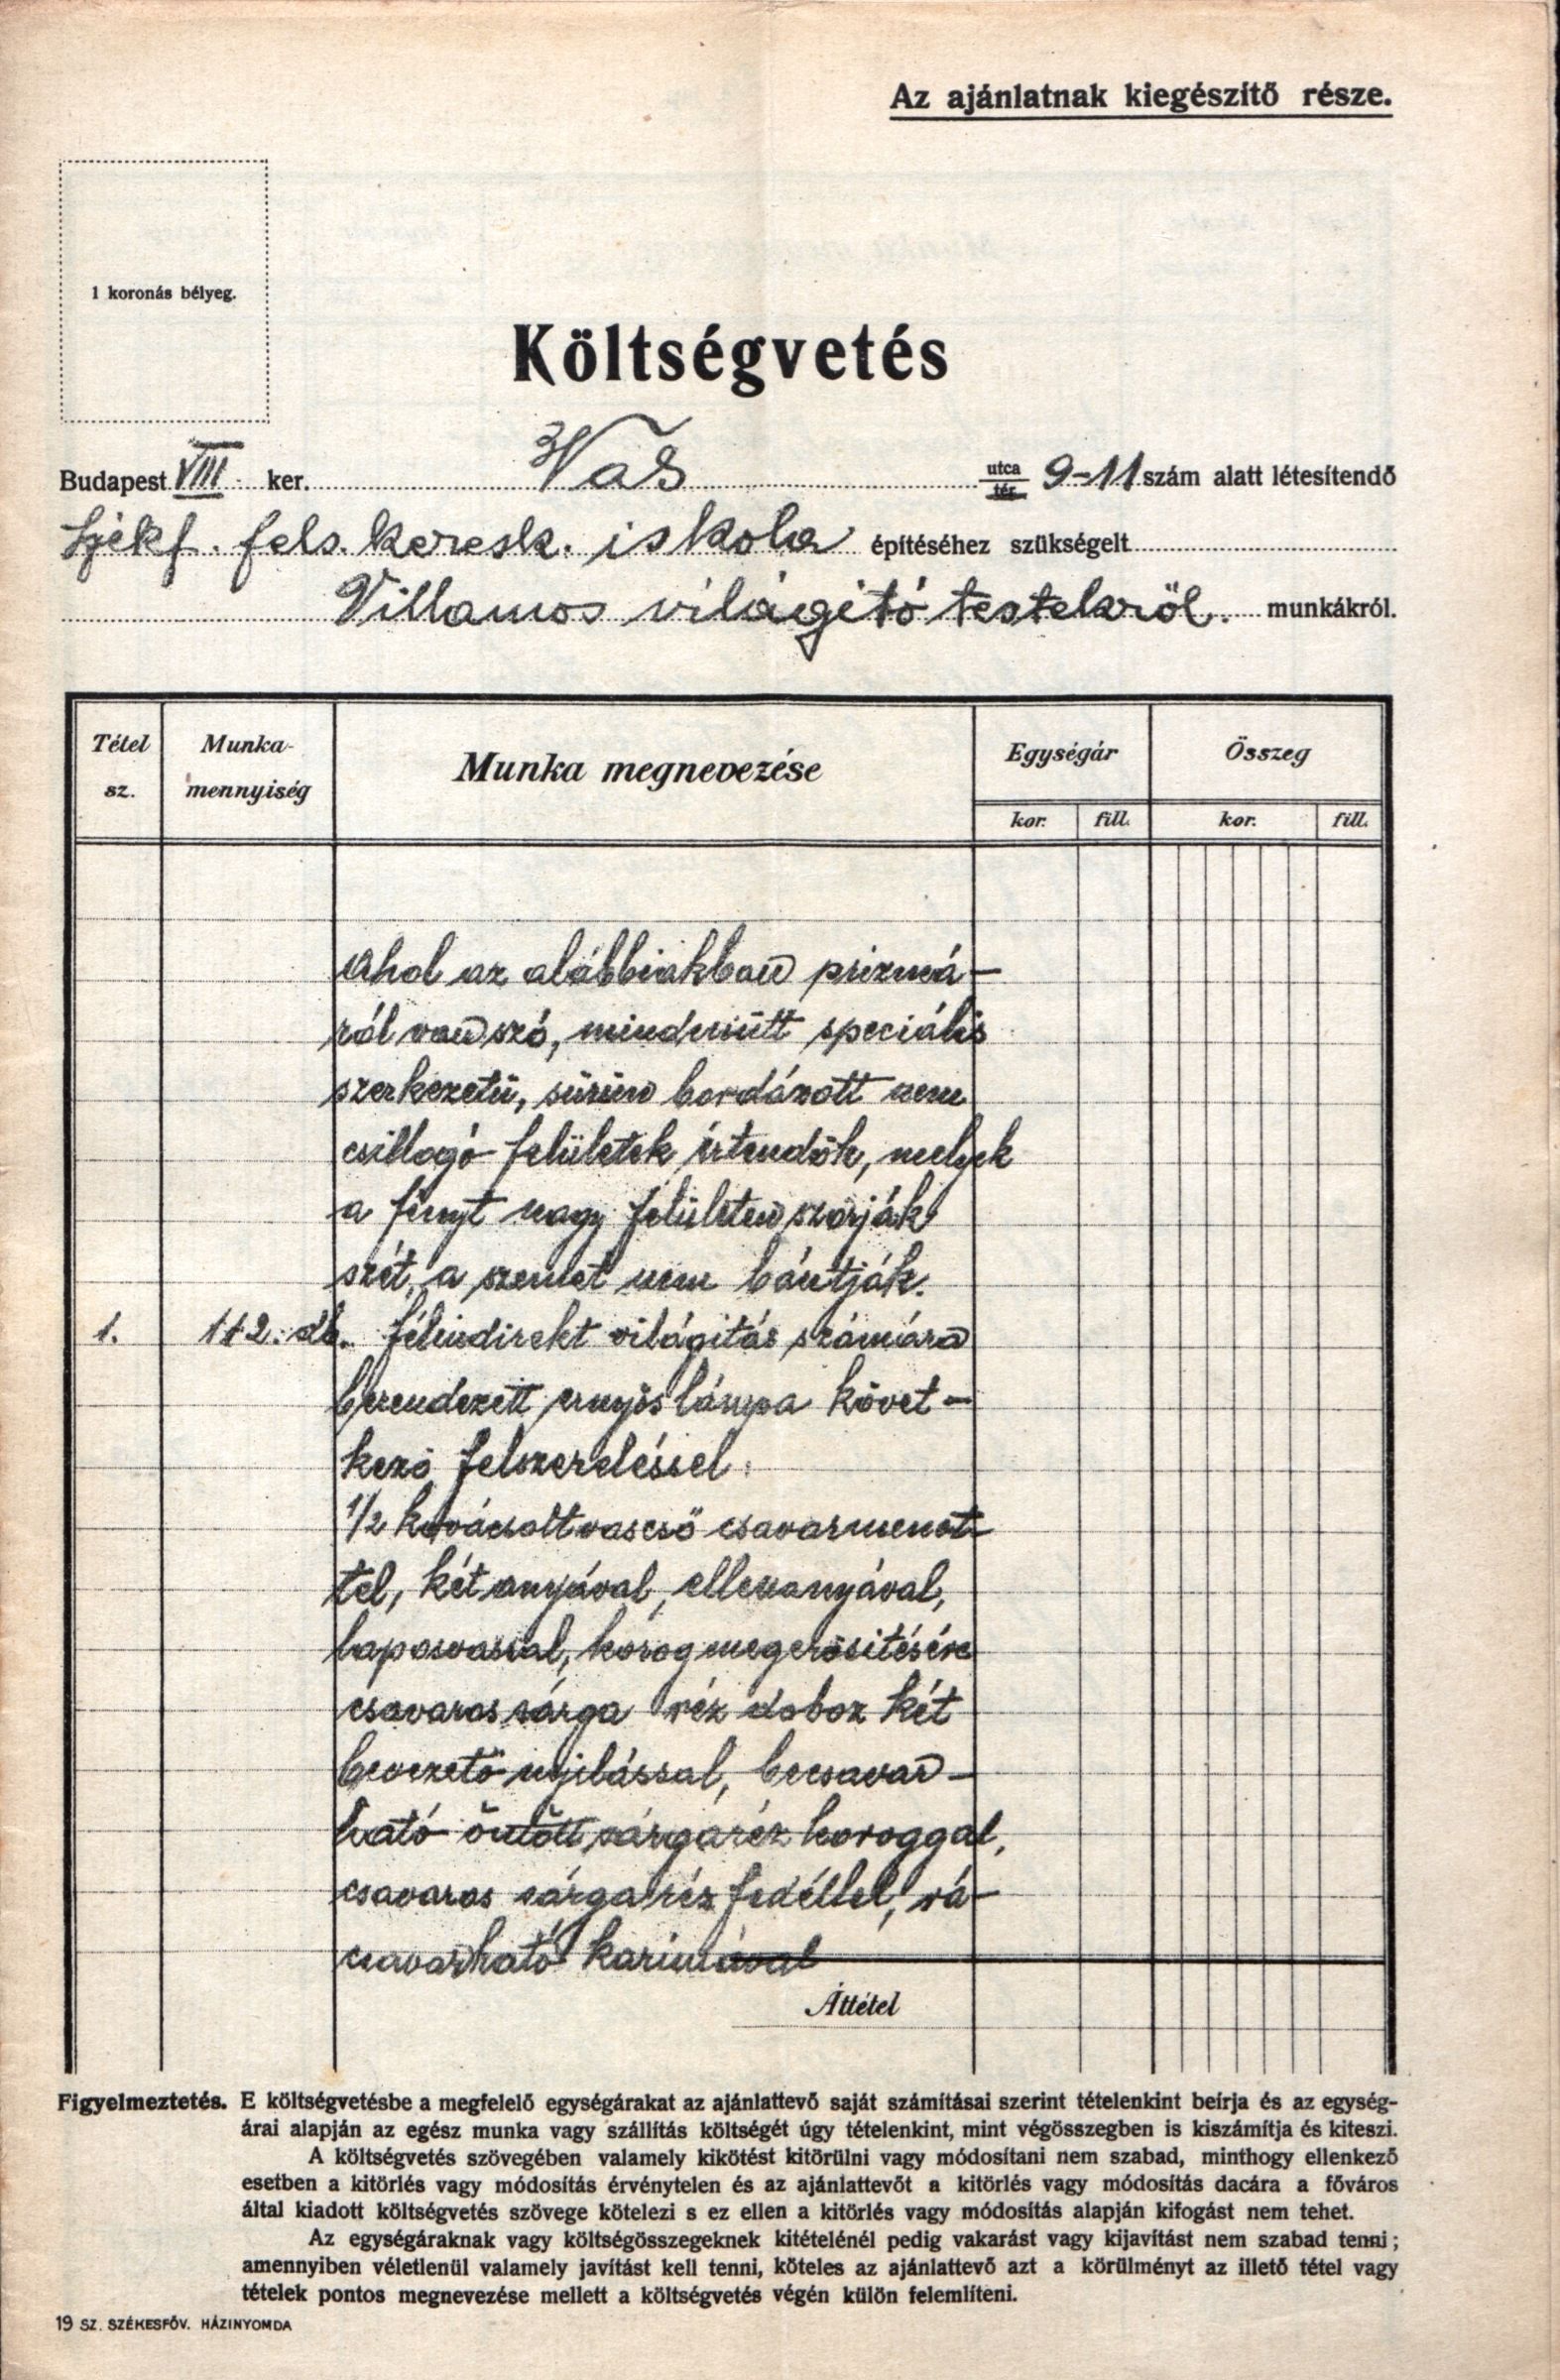 Az ajánlatnak kiegészítő része.
1 koronás bélyeg.
Költségvetés
Budapest VIII. ker. Vas utca tér 9-11 szám alatt létesítendő
Székf. fels. keresk. iskola építéséhez szükségelt
Villamos világító testekről. munkákról.
Tétel sz. Munka-mennyiség Munka megnevezése Egységár Összeg
kor. fill. kor. fill.
Ahol az alábbiakban prizmá-
ról van szó, mindenütt speciális
szerkezetü, sürün bordázott nem
csillogó felületek értendők, melyek
a fényt nagy felületen szórják
szét, a szemet nem bántják.
1. 112. db. félindirekt világitás számára
berendezett ernyős lámpa követ-
kező felszereléssel:
1/2 kovácsoltvascső csavarmenet-
tel, két anyával, ellenanyával,
laposvassal, horog megerősitésére
csavaros sárga réz doboz két
bevezető nyilással, becsavar-
ható öntött sárgaréz horoggal,
csavaros sárgaréz fedéllel, rá-
csavarható karimával
Áttétel
Figyelmeztetés. E költségvetésbe a megfelelő egységárakat az ajánlattevő saját számításai szerint tételenkint beírja és az egység-
árai alapján az egész munka vagy szállítás költségét úgy tételenkint, mint végösszegben is kiszámítja és kiteszi.
A költségvetés szövegében valamely kikötést kitörülni vagy módosítani nem szabad, minthogy ellenkező
esetben a kitörlés vagy módosítás érvénytelen és az ajánlattevőt a kitörlés vagy módosítás dacára a főváros
által kiadott költségvetés szövege kötelezi s ez ellen a kitörlés vagy módosítás alapján kifogást nem tehet.
Az egységáraknak vagy költségösszegeknek kitételénél pedig vakarást vagy kijavítást nem szabad tenni;
amennyiben véletlenül valamely javítást kell tenni, köteles az ajánlattevő azt a körülményt az illető tétel vagy
tételek pontos megnevezése mellett a költségvetés végén külön felemlíteni.
19 SZ. SZÉKESFŐV. HÁZINYOMDA